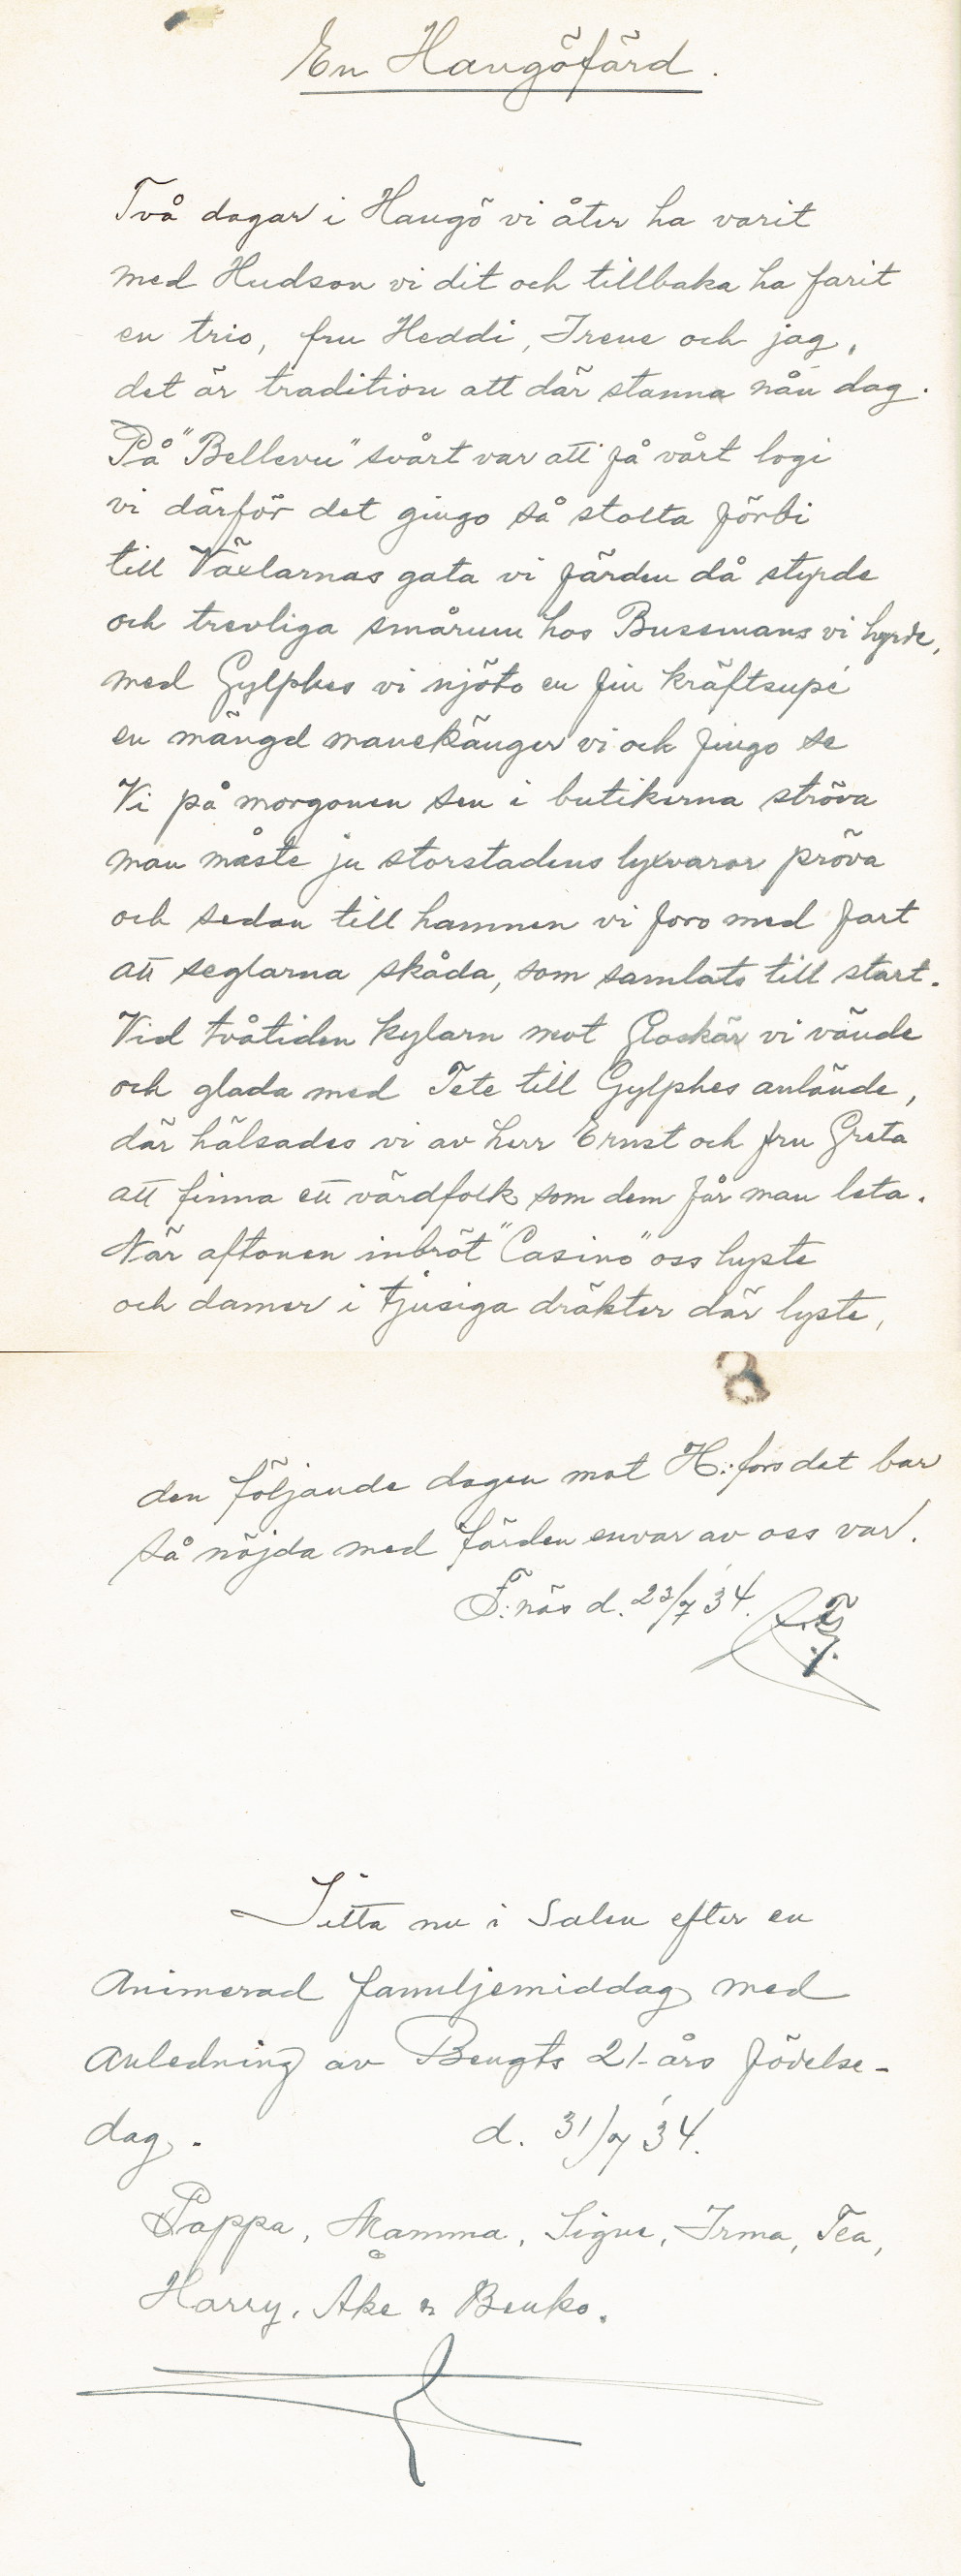 En Hangöfärd.
Två dagar i Hangö vi åter ha varit
med Hudson vi dit och tillbaka ha farit
en trio, fru Heddi, Irene och jag,
det är tradition att där stanna nån dag.
På "Bellevu" svårt var att få vårt logi
vi därför det gingo så stolta förbi
till Växlarnas gata vi färden då styrde
och trevliga smårum hos Bussmans vi hyrde,
med Gylphes vi njöto en fin kräftsupé
en mängd manekänger vi och fingo se
Vi på morgonen sen i butikerna ströva
man måste ju storstadens lyxvaror pröva
och sedan till hamnen vi foro med fart
att seglarna skåda, som samlats till start.
Vid tvåtiden kylarn mot Gloskär vi vände
och glada med Tete till Gylphes anlände,
där hälsades vi av herr Ernst och fru Greta
att finna ett värdfolk som dem får man leta.
När aftonen inbröt "Casino" oss lyste
och damer i tjusiga dräkter där lyste,
den följande dagen mot H:fors det bar
så nöjda med färden envar av oss var.
F:näs d. 23/7 34.
Sitta nu i Salen efter en
Animerad familjemiddag med
Anledning av Bengts 21-års födelse-
dag. d. 31/7 34.
Pappa, Mamma, Signe, Irma, Tea,
Harry, Åke & Benko.